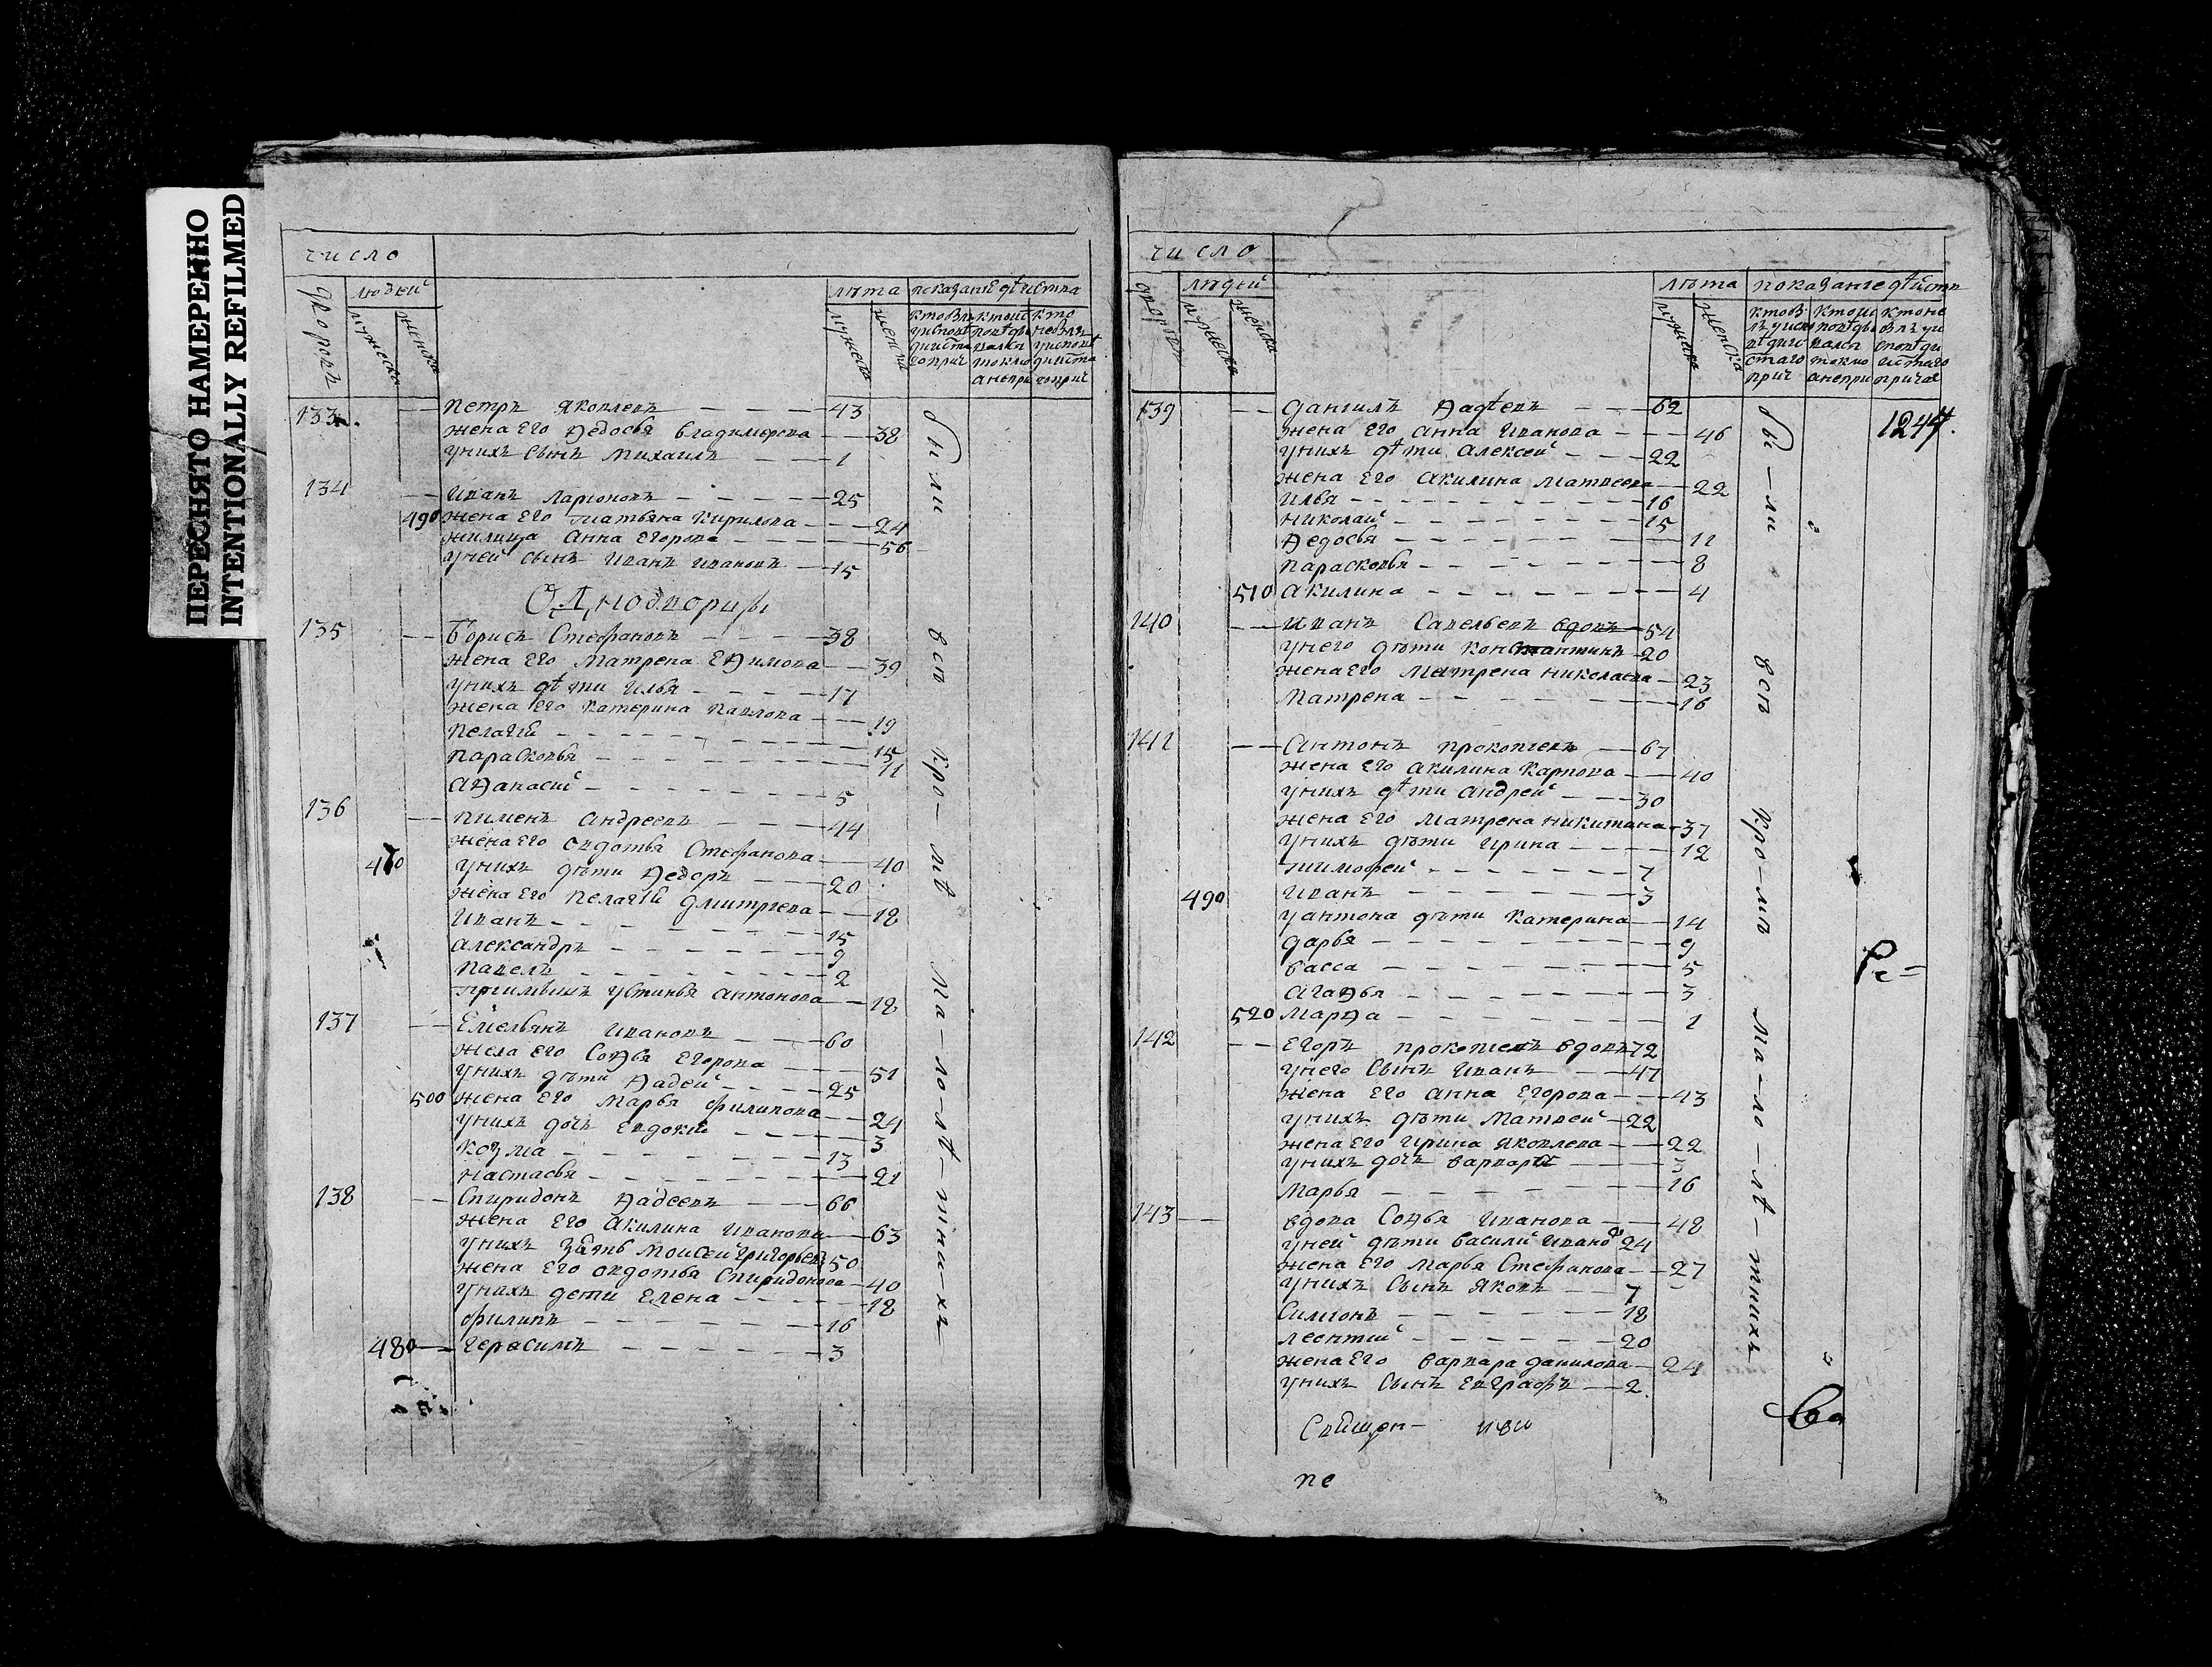 ПЕРЕСНЯТО НАМЕРЕННО
INTENTIONALLY REFILMED
число
дворовъ людей лѣта показанiе дѣйства
мужеска женска мужеска женска
133 Петръ Яковлевъ 43
жена его Ѳедосья Владимерова 38
у нихъ сынъ Михаилъ 1
134 Иванъ Ларионовъ 25
490 жена его Татьяна Кирилова 24
жилица Анна Егорова 56
у ней сынъ Иванъ Ивановъ 15
Однодворцы
135 Борисъ Стефановъ 38
жена его Матрена Еѳимова 39
у нихъ дѣти Илья 17
жена его Катерина Павлова 19
Пелагiя 15
Парасковья 11
Аѳанасий 5
136 Пименъ Андреевъ 44
жена его Овдотья Стефанова 40
470 у нихъ дѣти Ѳедоръ 20
жена его Пелагiя Дмитриева 18
Иванъ 15
Александръ 9
Павелъ 2
приимышъ Устинья Антонова 18
137 Емельянъ Ивановъ 60
жена его Соѳья Егорова 51
у нихъ дѣти Ѳадей 25
500 жена его Марья Филипова 24
у нихъ дочь Евдокия 3
Козма 13
Настасья 21
138 Спиридонъ Ѳадеевъ 66
жена его Акилина Иванова 63
у нихъ зять Моисей Григорьевъ 50
жена его Овдотья Спиридонова 40
у нихъ дети Елена 18
Филипъ 16
480 Герасимъ 3
были всѣ кромѣ малолѣтнихъ
число
дворовъ людей лѣта показание дѣйств
мужеска женска мужеска женска
139 Дангилъ Ѳадѣевъ 62
1244.
жена его Анна Иванова 46
у нихъ дѣти Алексей 22
жена его Акилина Матвеева 22
Илья 16
Николай 15
Ѳедосья 11
Парасковья 8
510 Акилина 4
140 Иванъ Савельевъ вдовъ 54
у него дѣти Константинъ 20
жена его Матрена Николаева 23
Матрена 16
141 Антонъ Прокопиевъ 67
жена его Акилина Карпова 40
у нихъ дѣти Андрей 30
жена его Матрена Никитина 37
у нихъ дѣти Ирина 12
Тимофей 7
490 Иванъ 3
у Антона дѣти Катерина 14
Дарья 9
Васса 5
Агаѳья 3
520 Марѳа 1
142 Егоръ Прокопиевъ вдовъ 72
у него сынъ Иванъ 47
жена его Анна Егорова 43
у нихъ дѣти Матвей 22
жена его Ирина Яковлева 22
у нихъ дочь Варвара 3
Марья 16
143 вдова Соѳья Иванова 48
у ней дѣти Василий Иванов 24
жена его Марья Стефанова 27
у нихъ сынъ Яковъ 7
Симионъ 18
Леонтий 20
жена его Варвара Данилова 24
у нихъ сынъ Евграфъ 2
были всѣ кромѣ малолѣтнихъ